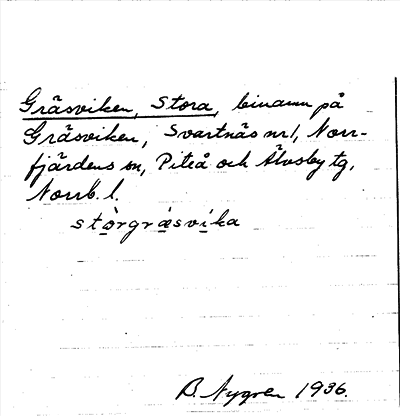 Gräsviken, Stora, binamn på
Gräsviken, Svartnäs nr 1, Norr-
fjärdens sn, Piteå och Älvsby tg,
Norrb. l.
stòrgræsvika
B. Nygren 1936.